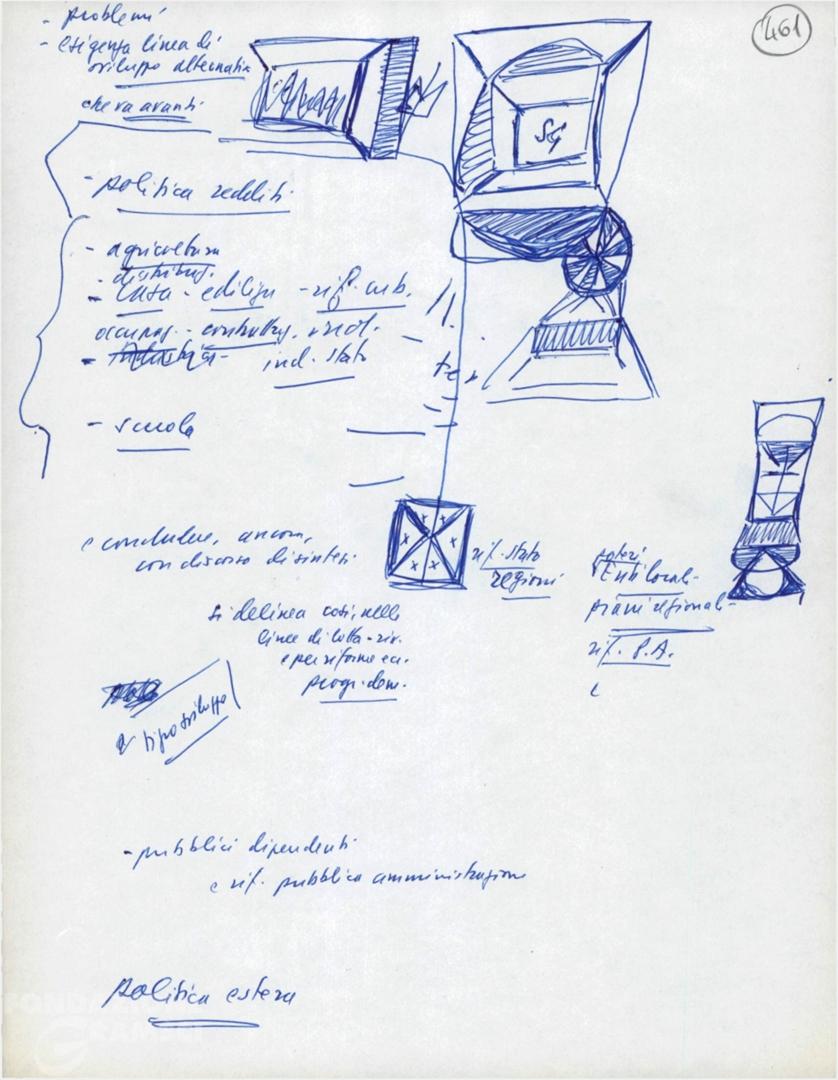 461
- problemi
- esigenza linea di
sviluppo alternativa
che va avanti
- politica redditi
- agricoltura
- distribuz.
- casa - edilizia - rif. urb.
occupaz. - 
- ind. stato
- scuola
SG
e concludere, ancora,
con discorso di sintesi
rif. stato
regioni
poteri
Enti locali -
piani regionali -
rif. P.A.
si delinea così, nelle
linee di lotta - riv.
e per riforme ec.
progr. dem.
tipo sviluppo
- pubblici dipendenti
e rif. pubblica amministrazione
politica estera
FONDAZIONE
GRAMSCI